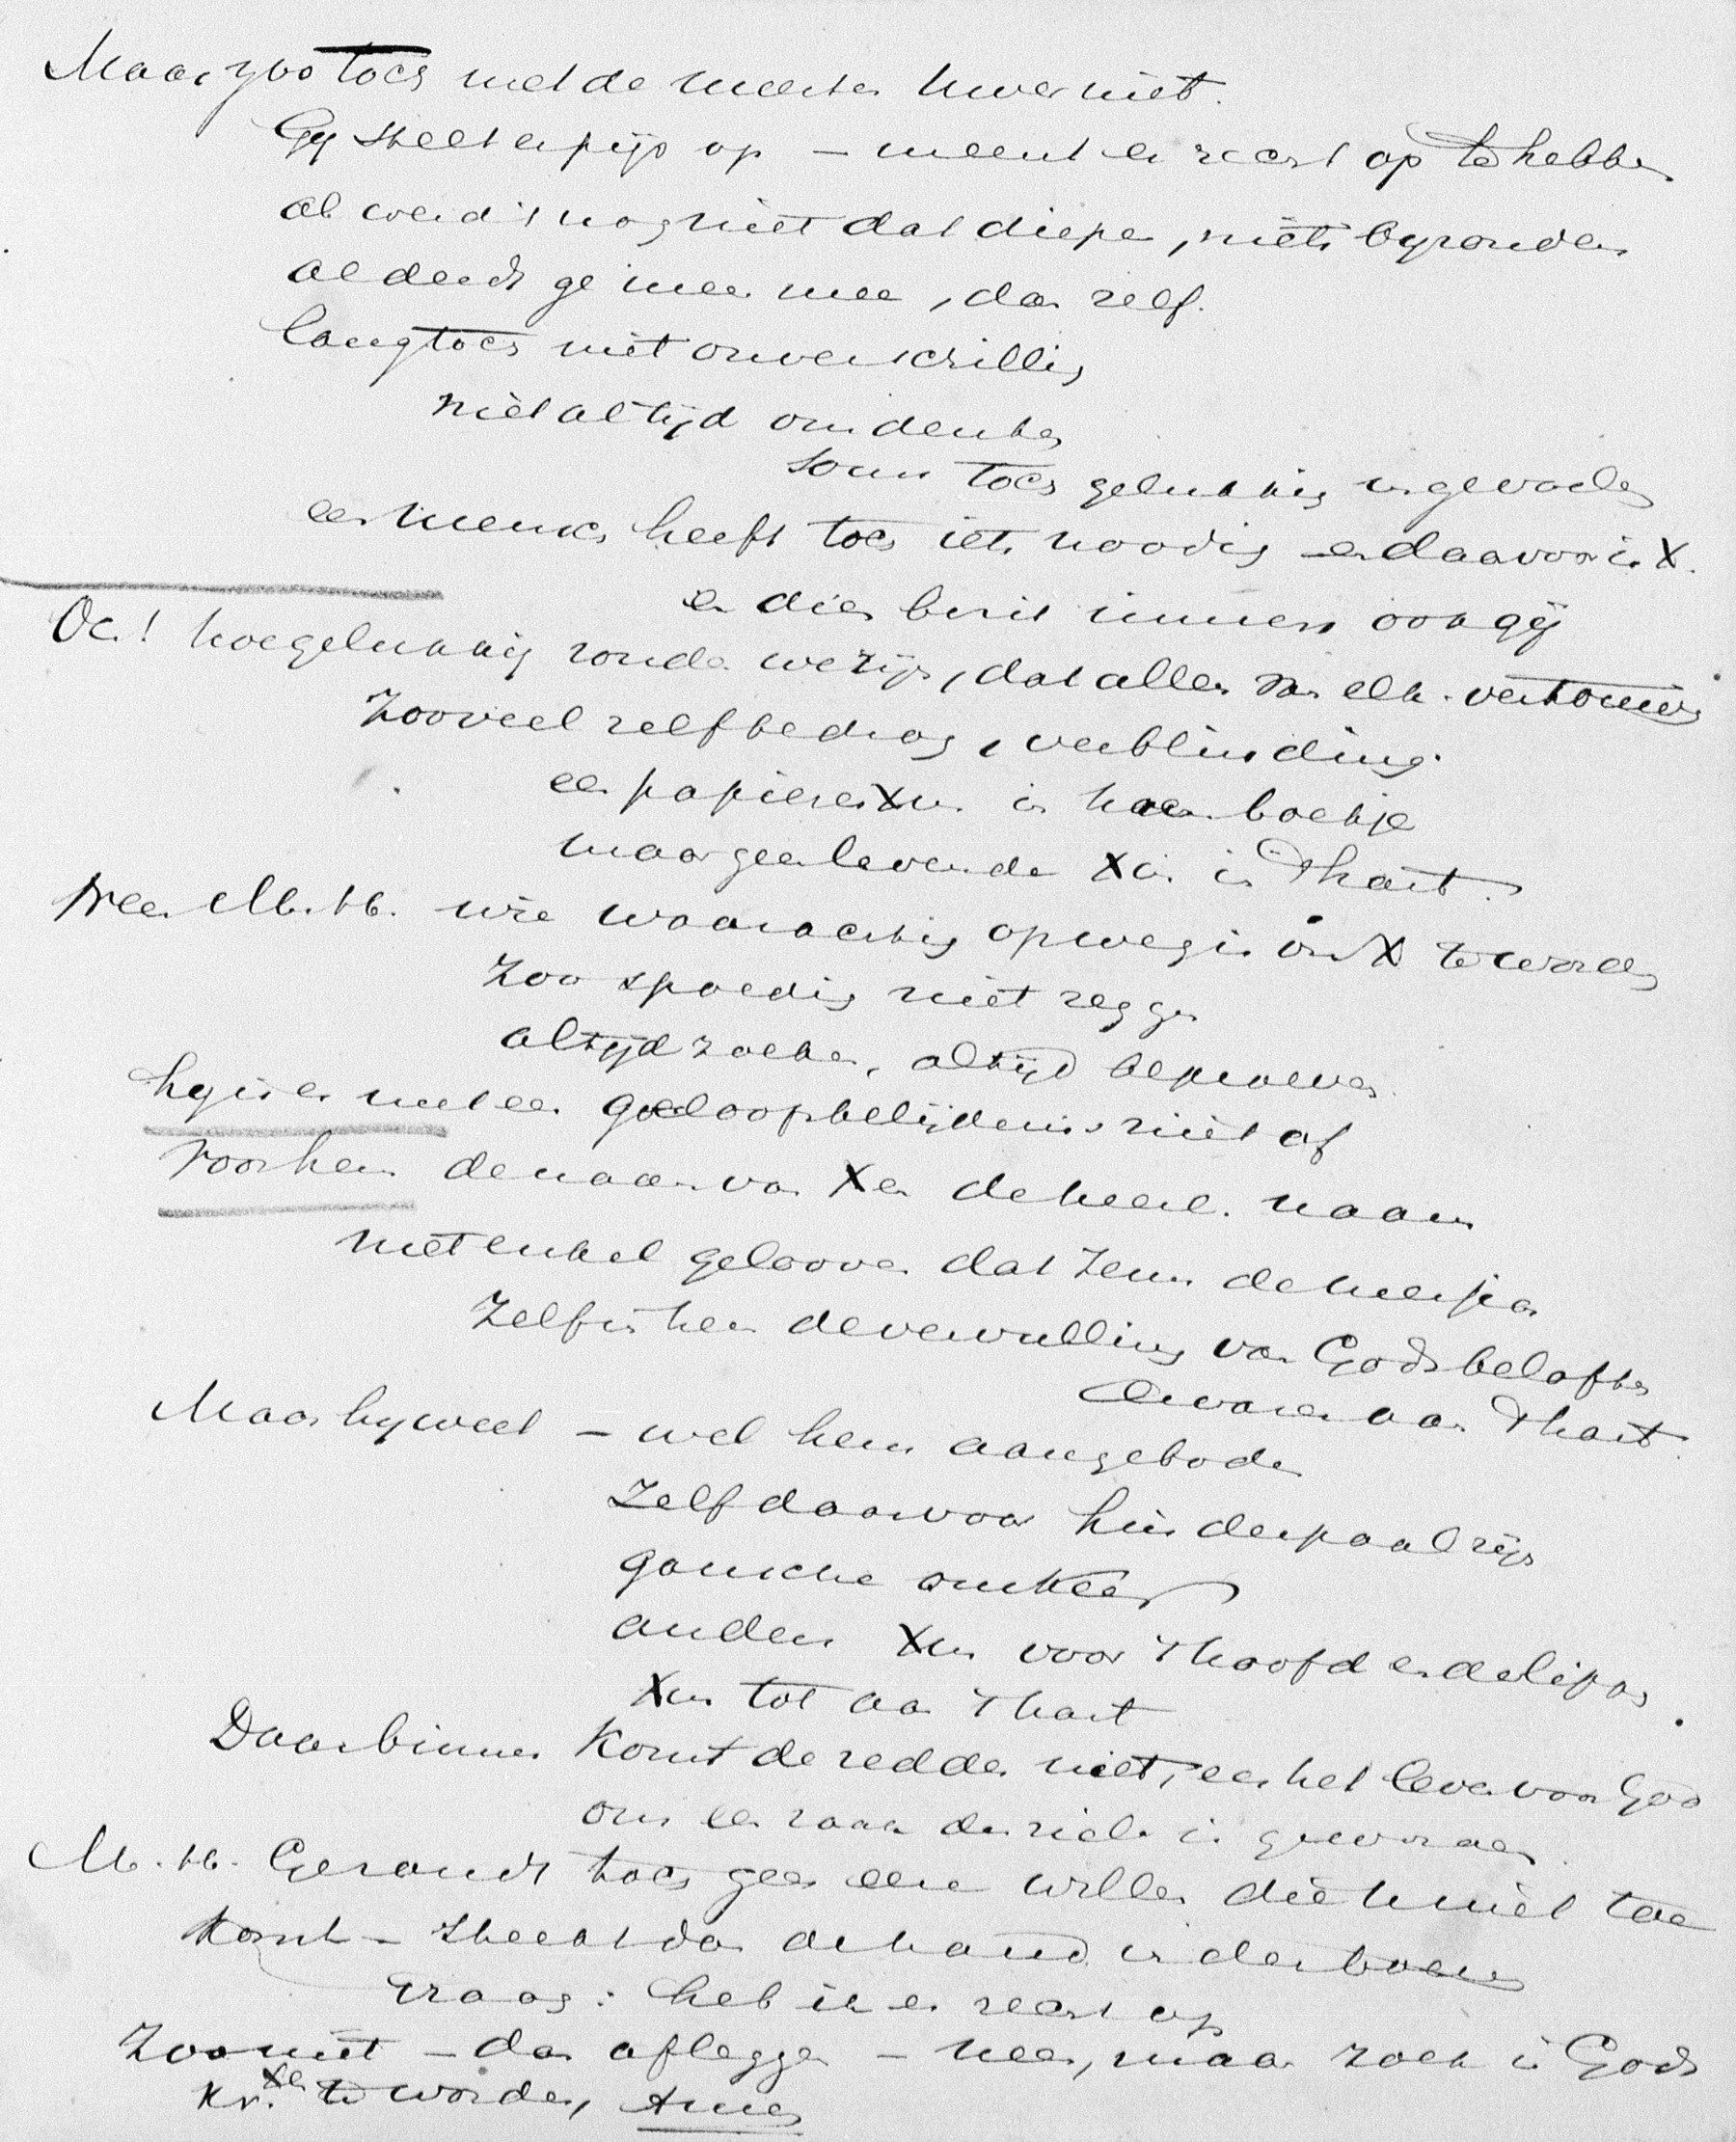 Maar zoo toch met de meesten Uwer niet.
Gij stelt er prijs op – meent er recht op te hebben
al werd 't nog niet dat diepe, niets byzonders
al deedt ge meer mee, dan zelf.
Lang toch niet onverschillig
niet altijd om denken
soms toch gelukkig in gevoelen
een mensch heeft toch iets noodig en daarvoor is X.
en dien bezit immers ook gij
Och! hoe gelukkig zouden we zijn, dat allen van elk.
Zooveel zelfbedrog, verblinding.
een papieren Xus in haar boekje
maar geen levende Xus in 't hart.
Neen M.H. wie waarachtig op weg is om X te worden
Zoo spoedig niet zeggen
altijd zoeken, altijd beproeven.
hy is er met een geloofsbelijdenis niet af
Voor hem de naam van Xen de heerl. naam
niet enkel gelooven dat Jezus de Messias
Zelf in hem de vervulling van Gods beloften
ervaren aan 't hart
Maar hy weet – wel hem aangeboden
Zelf daarvoor hinderpaal zijn
gansche omkeer
anders Xus voor 't hoofd en de lippen
Xus tot aan 't hart
Daar binnen komt de redder niet, eer het leven voor God
ons een zaak der ziele is geworden
M.H. Gij zoudt toch geen eere willen die U niet toe
komt – steekt dan de hand in den boezem
Vraag: heb ik er recht op
Zoo niet – dan afleggen – neen, maar zoek in Gods
Kr. Xen te worden, Amen